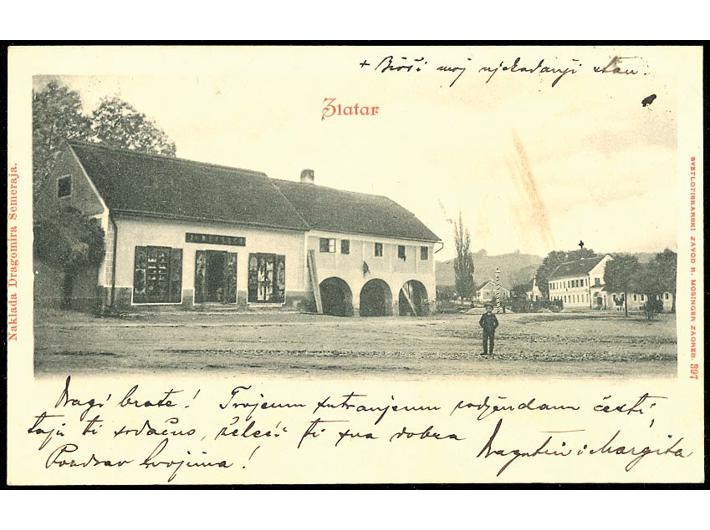 + Bivši moj njekadanji stan.
Zlatar
Naklada Dragomira Semeraja.
SVETLOTISKARSKI ZAVOD R. MOSINGER ZAGREB. 397
Dragi brate! Tvojemu sutranjemu rodjendanu česti
taju ti srdačno, želeći ti sva dobra
Pozdrav svojima!
i Margita